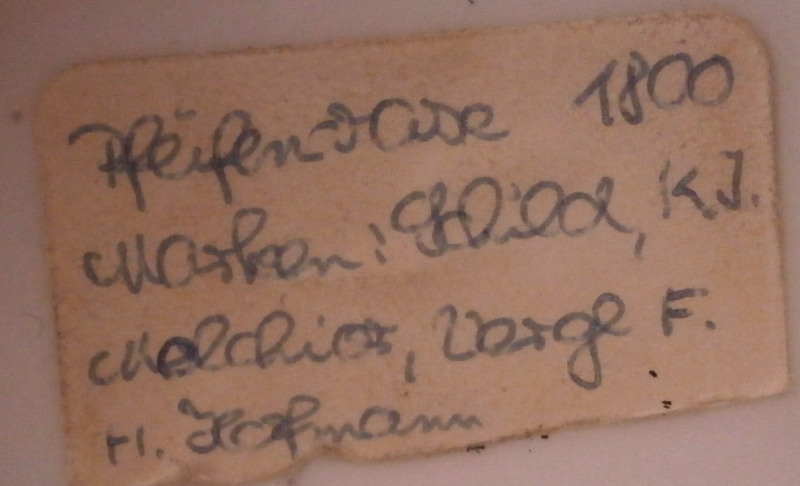 Pfeifen 1800
Marken: Schild, K.J.
Melchior, Vergl F.
H. Hofmann